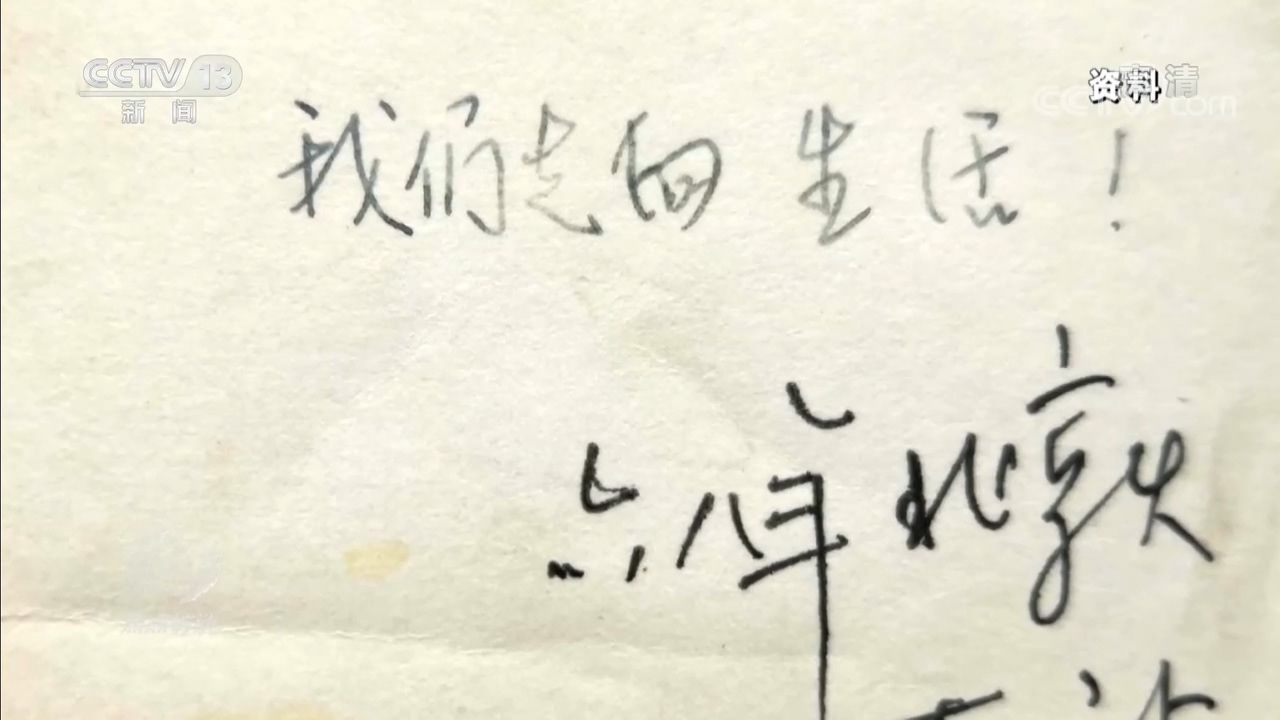 CCTV 13
新闻
资料
高清
CCTV.com
我们走向生活！
六八年